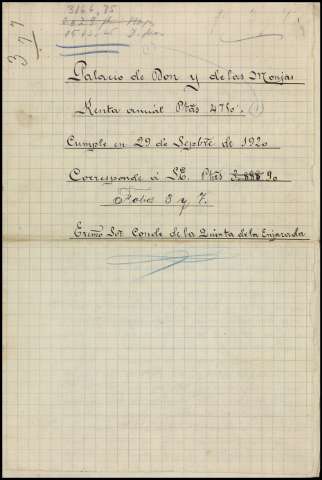 3166,85
327
Palacio de Don y de las Monjas
Renta anual Ptas 4750. (1)
Cumple en 29 de Sepbre. de 1920
Corresponde á S.E. Ptas 90
Folios 3 y 7.
Excmo Sor. Conde de la Quinta de la Enjarada